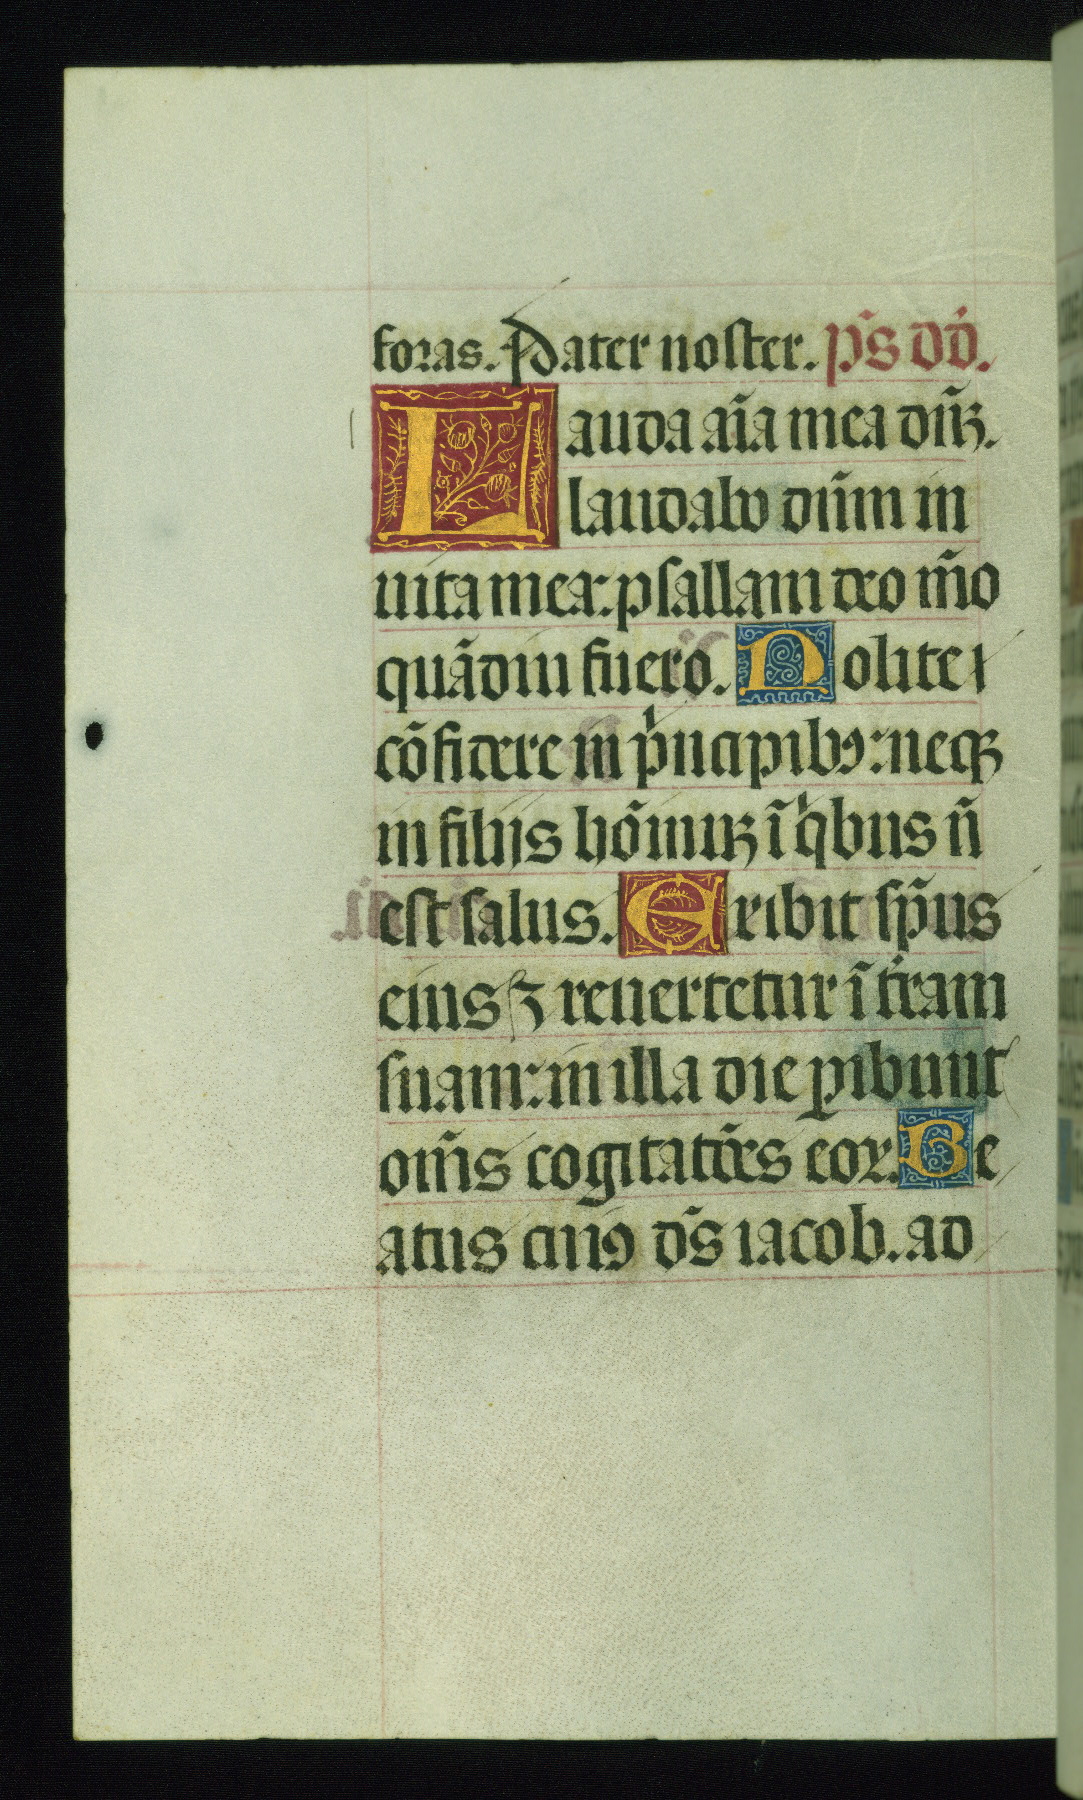 foras. Pater noster. p̄s dd̄.
Lauda aīa mea dn̄ʒ.
laudabo dn̄m in
uita mea: psallam deo m̄o
quādiu fuero. Nolite
cōfidere in pͥncipibꝯ: neqʒ
in filijs hōīnuʒ ī qͥbus n̄
est salus. Exibit sp̄us
eius ⁊ reuertetur ī tr̄am
suam: in illa die ꝑibunt
om̄s cogitatōēs eoꝝ. Be
atus cuiꝯ ds̄ iacob. ad